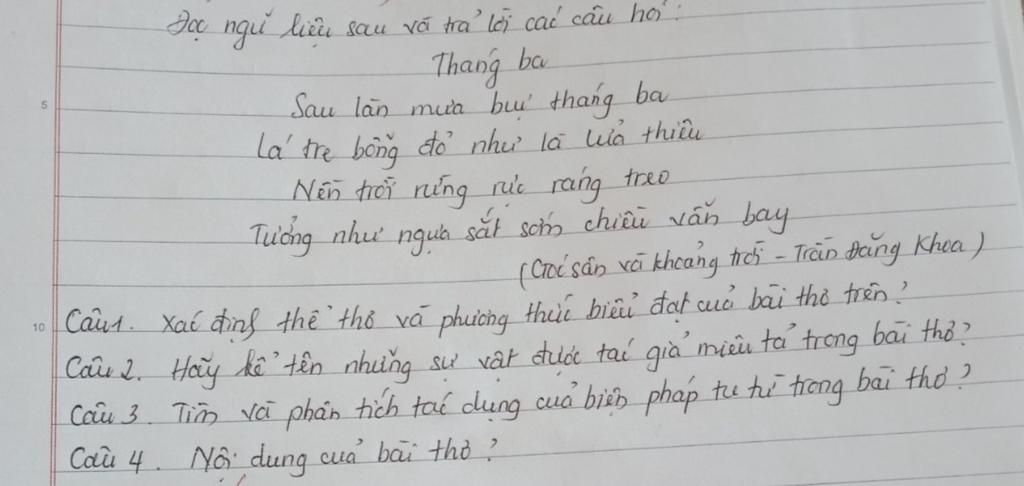 Đọc ngữ liệu sau và trả lời các câu hỏi:
Tháng ba
5
Sau làn mưa bụi tháng ba
Lá tre bỗng đỏ như là lửa thiêu
Nền trời rừng rực ráng treo
Tưởng như ngựa sắt sớm chiều vẫn bay
(Góc sân và khoảng trời - Trần Đăng Khoa)
10 Câu 1. Xác định thể thơ và phương thức biểu đạt của bài thơ trên?
Câu 2. Hãy kể tên những sự vật được tác giả miêu tả trong bài thơ?
Câu 3. Tìm và phân tích tác dụng của biện pháp tu từ trong bài thơ?
Câu 4. Nội dung của bài thơ?